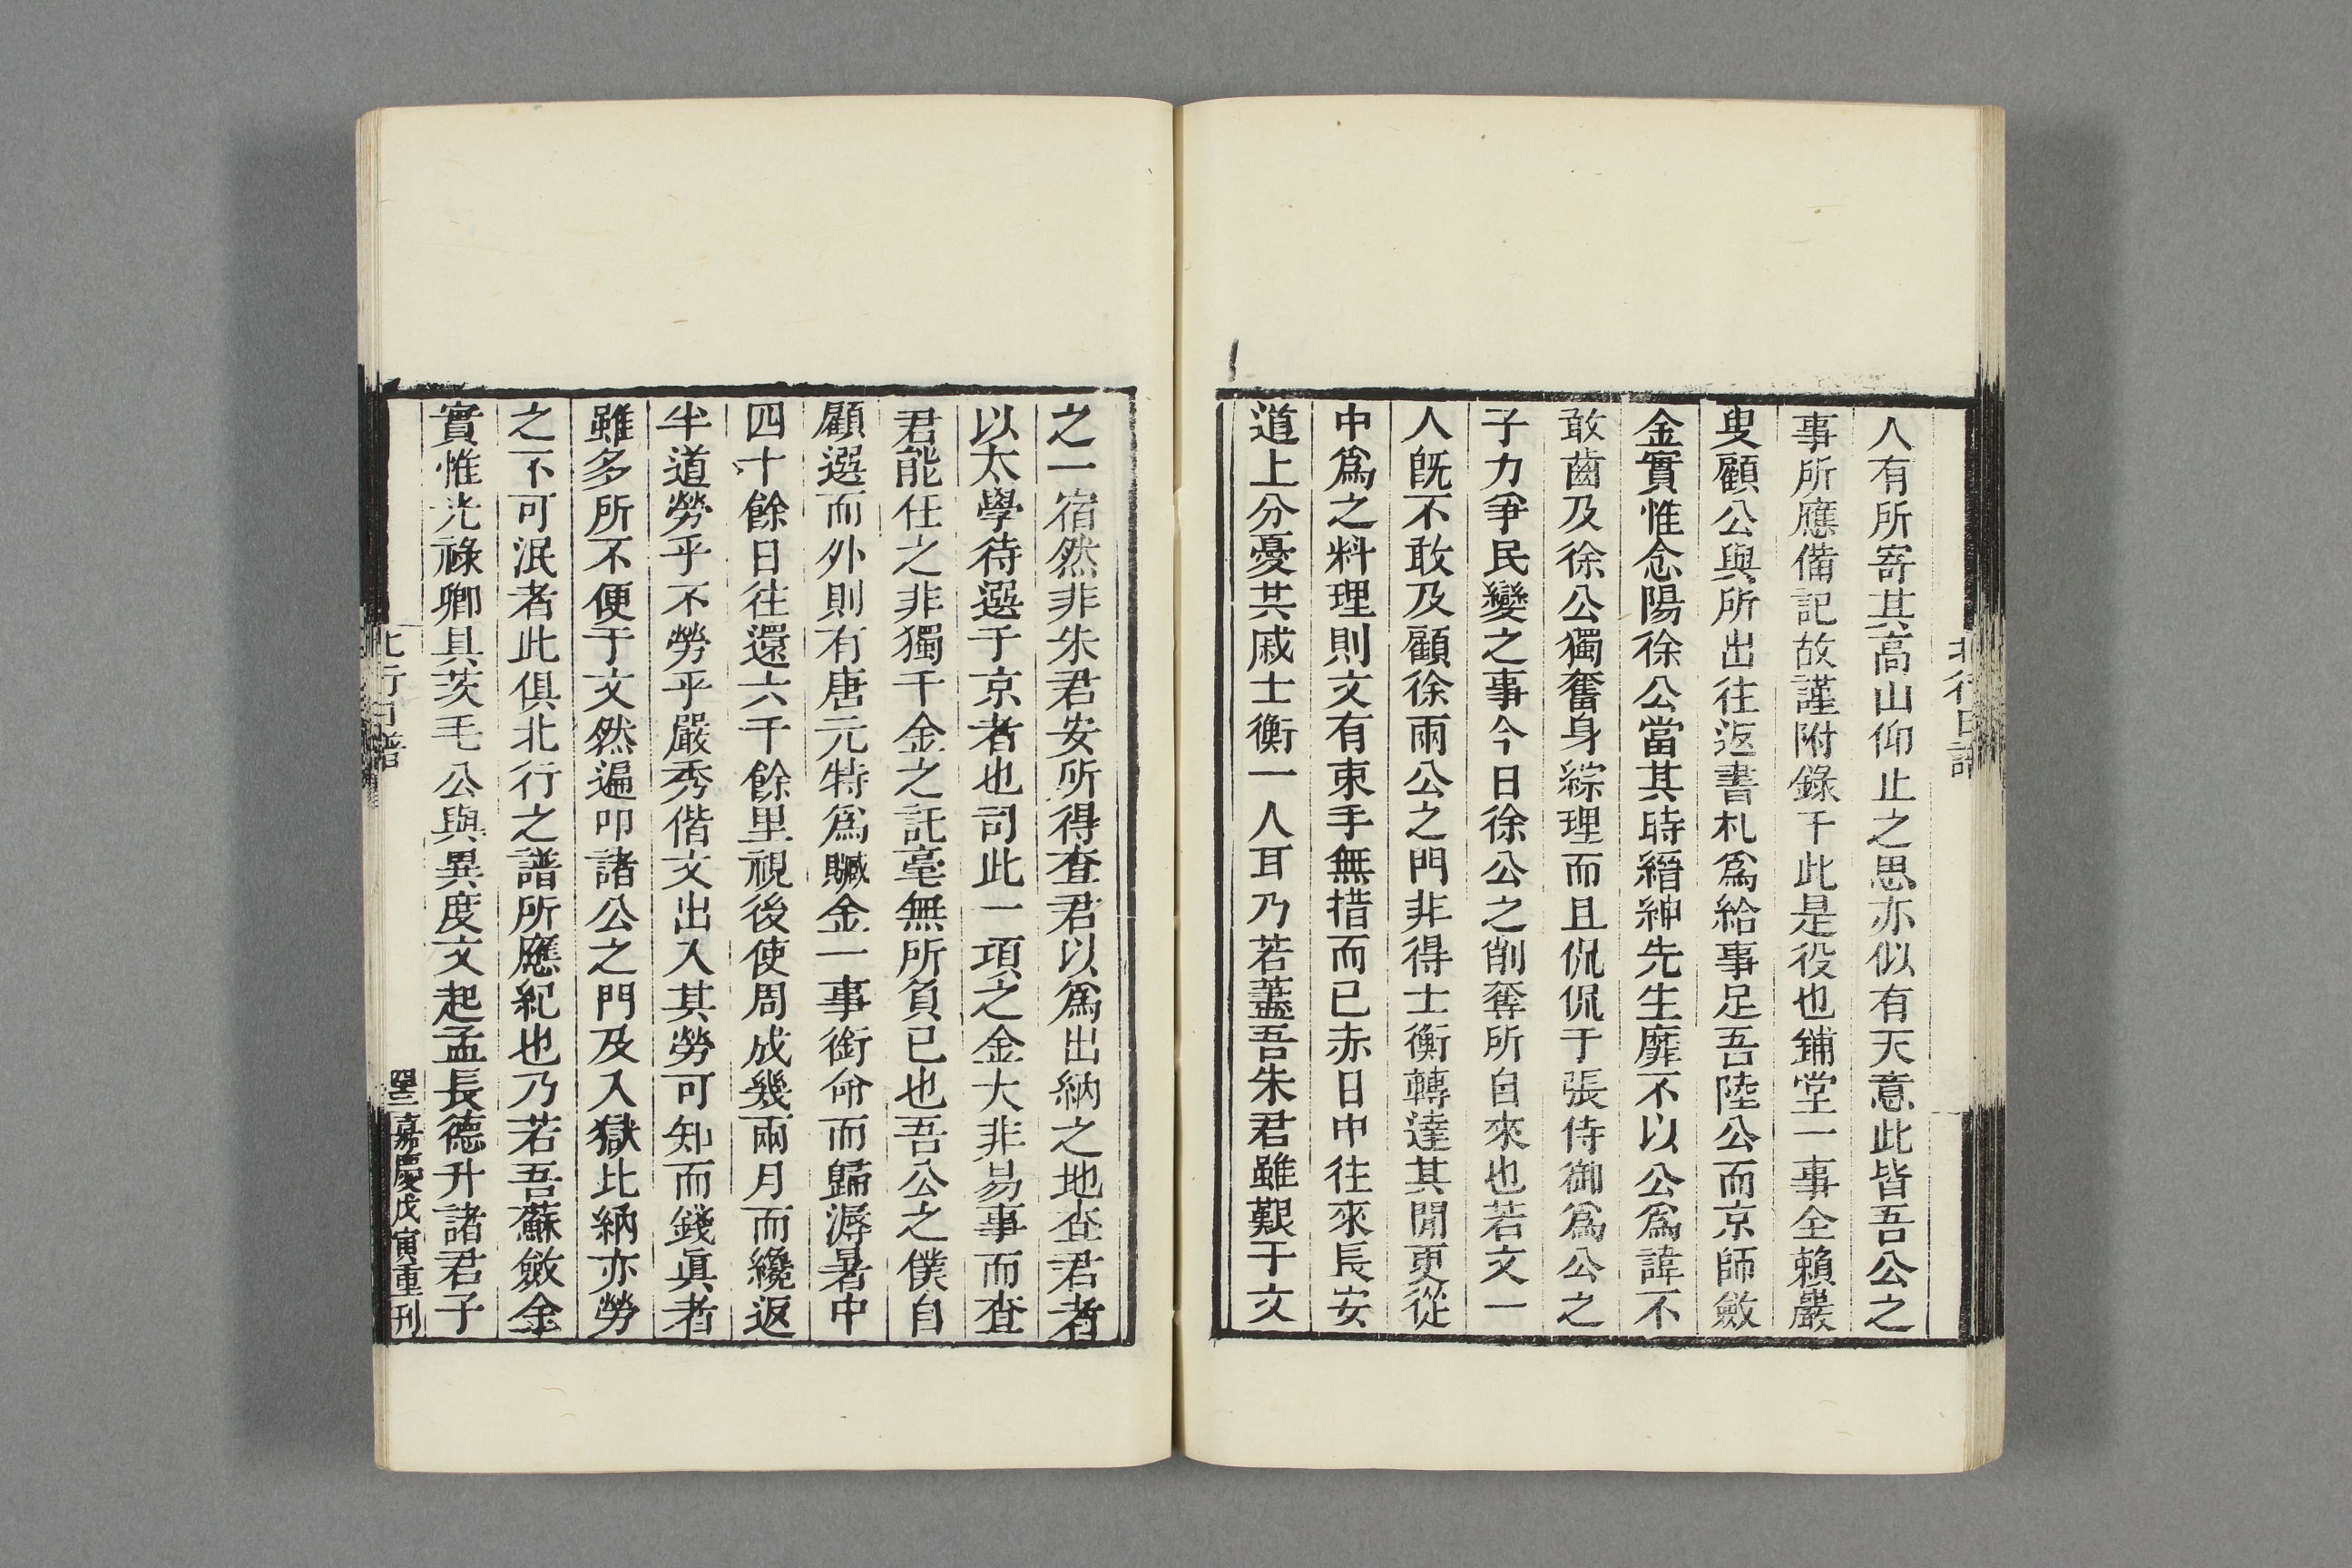 北行日譜
人有所寄其高山仰止之思亦似有天意此皆吾公之
事所應備記故謹附錄于此是役也鋪堂一事全賴嚴
叟顧公與所出往返書札爲給事足吾陸公而京師斂
金實惟念陽徐公當其時縉紳先生靡不以公爲諱不
敢齒及徐公獨奮身綜理而且侃侃于張侍御爲公之
子力爭民變之事今日徐公之削奪所自來也若文一
人旣不敢及顧徐兩公之門非得士衡轉達其閒更從
中爲之料理則文有束手無措而已赤日中往來長安
道上分憂其戚士衡一人耳乃若藎吾朱君雖艱于文
之一宿然非朱君安所得查君以爲出納之地查君者
以太學待選于京者也司此一項之金大非易事而查
君能任之非獨千金之託毫無所負已也吾公之僕自
顧選而外則有唐元特爲贓金一事銜命而歸溽暑中
四十餘日往還六千餘里視後使周成幾兩月而纔返
半道勞乎不勞乎嚴秀偕文出入其勞可知而錢眞者
雖多所不便于文然遍叩諸公之門及入獄比納亦勞
之不可泯者此俱北行之譜所應紀也乃若吾蘇斂金
實惟光祿卿具茨毛公與異度文起孟長德升諸君子
北行日譜
嘉慶戊寅重刊